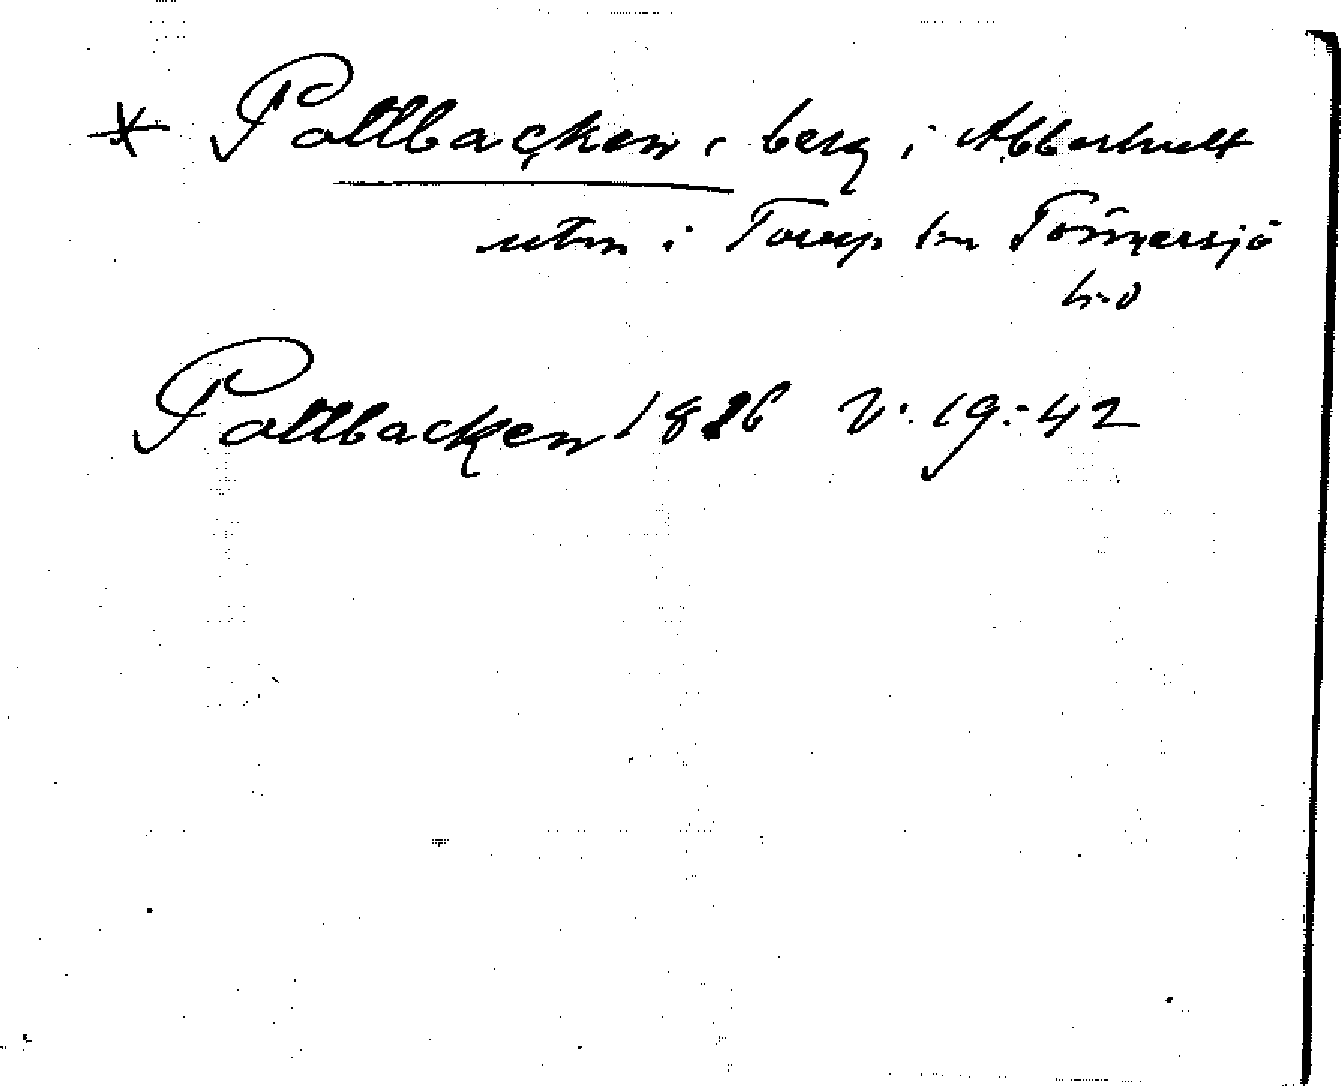 * Pottbacken, berg i Abborhult
utm i Torup sn Tönnersjö
h-d
Pottbacken 1826 V: 19:42